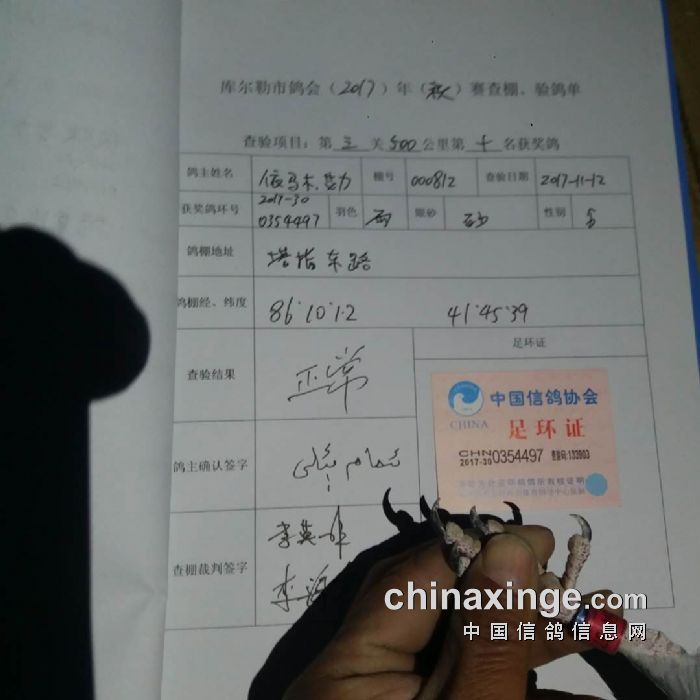 库尔勒市鸽会（2017）年（秋）赛查棚、验鸽单
查验项目：第 三 关 500 公里第 十 名获奖鸽
鸽主姓名 依马木.艾力 棚号 000812 查验日期 2017-11-12
获奖鸽环号 2017-30 0354497 羽色 雨 眼砂 砂 性别
鸽棚地址 塔指东路
鸽棚经、纬度 86:10:1.2 41:45:39
查验结果 正常
足环证
中国信鸽协会
CHINA
足环证
CHN
2017-30 0354497
鸽主确认签字
查棚裁判签字 李英
chinaxinge.com
中国信鸽信息网